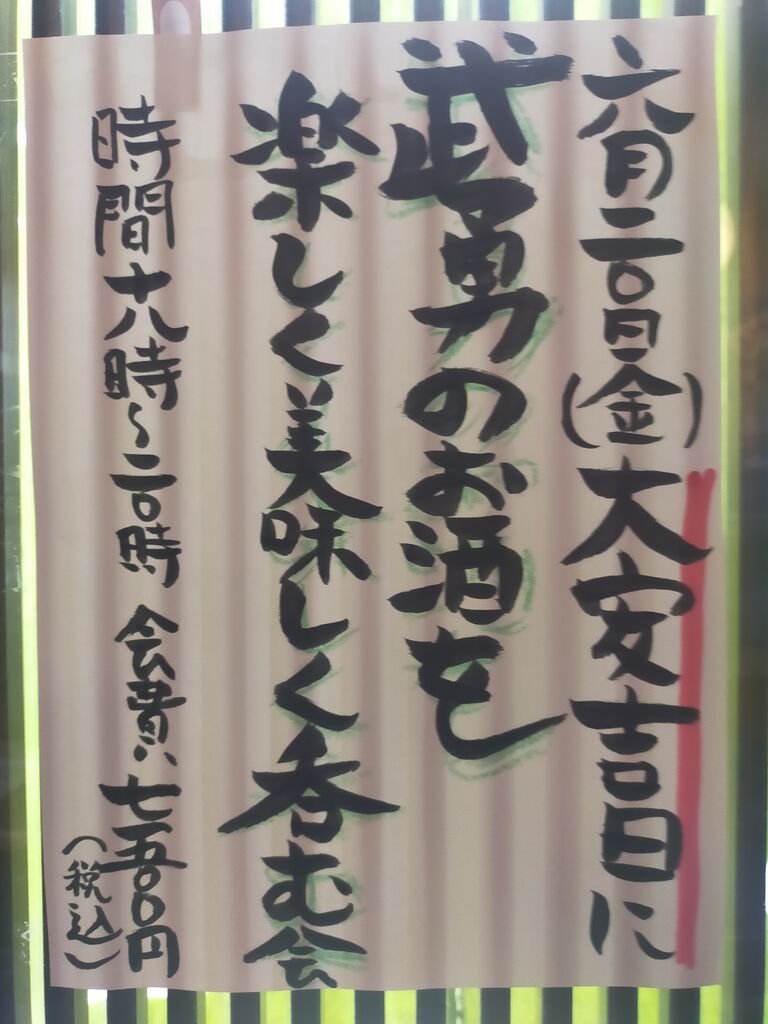 六月二〇日(金)大安吉日に
武勇のお酒を
楽しく美味しく呑む会
時間十八時～二〇時 会費、七五〇〇円
(税込)